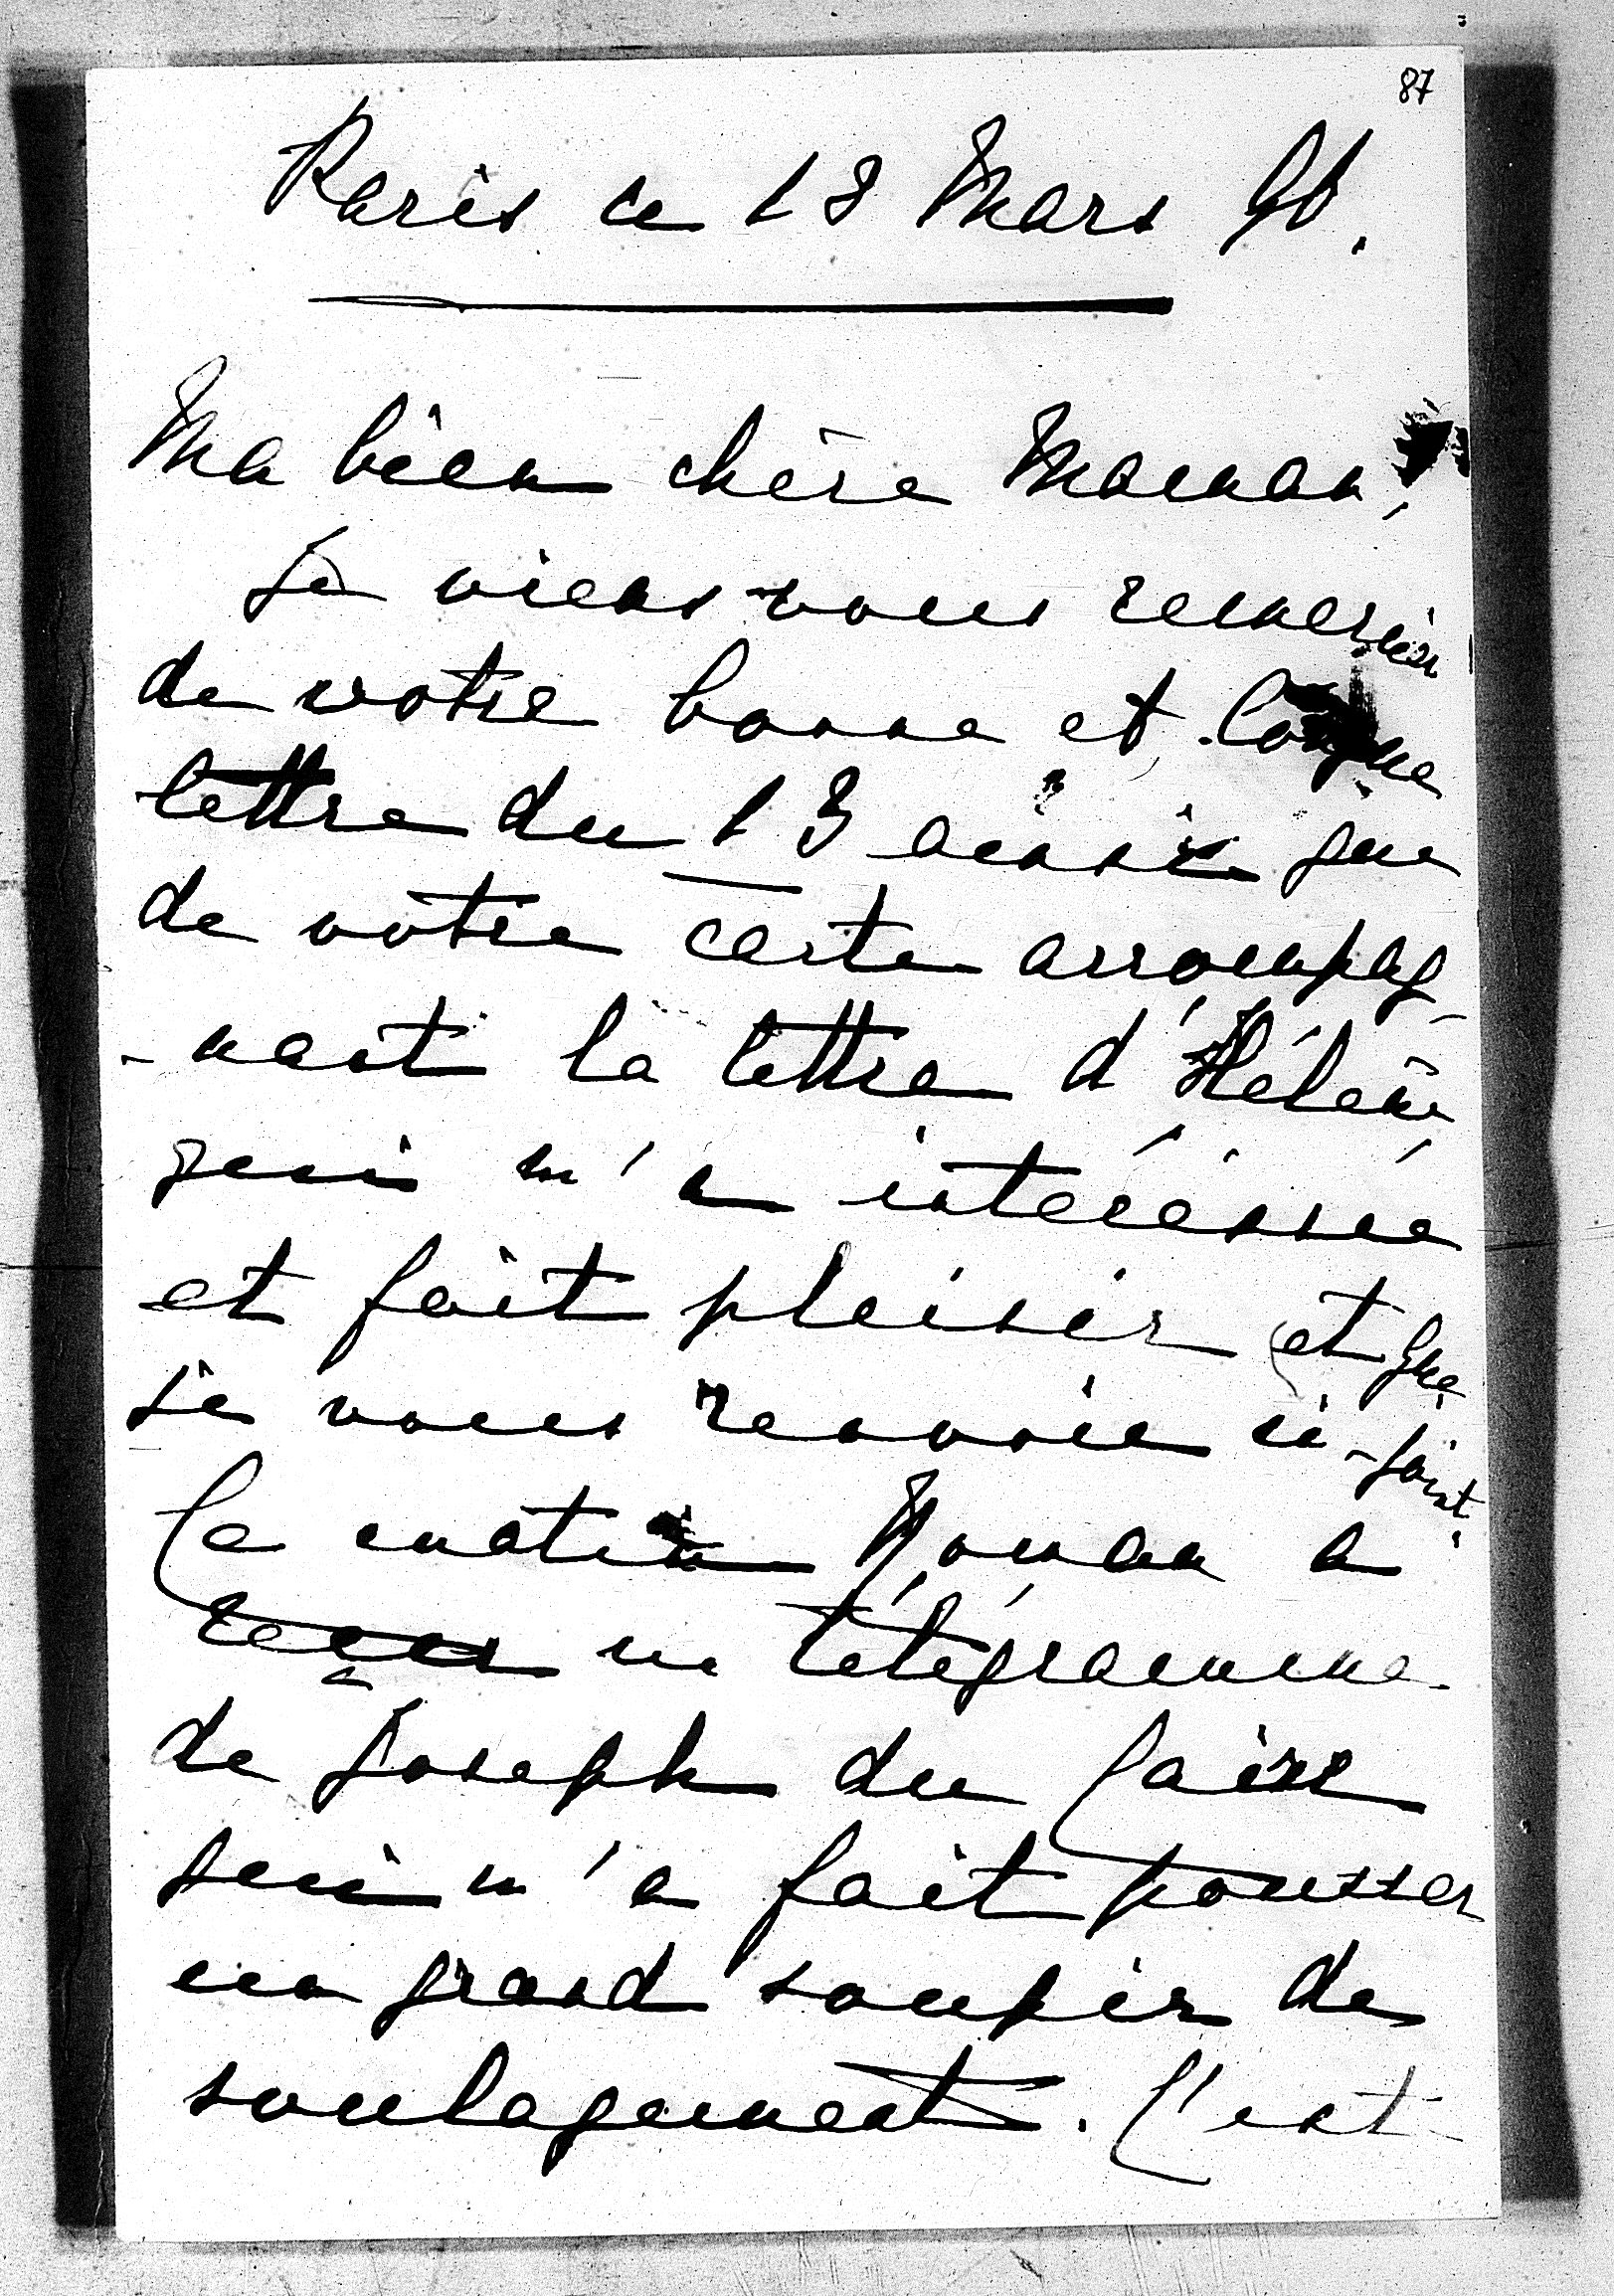 87
Paris ce 18 Mars 90.
Ma bien chère Maman,
Je viens vous remercier
de votre bonne et longue
lettre du 13 ainsi que
de votre carte accompag-
-nant la lettre d'Hélène
qui m'a intéressée
et fait plaisir et que
je vous renvoie ci-joint.
Ce matin Roman a
reçu un télégramme
de Joseph du Caire
qui m'a fait pousser
un grand soupir de
soulagement. C'est